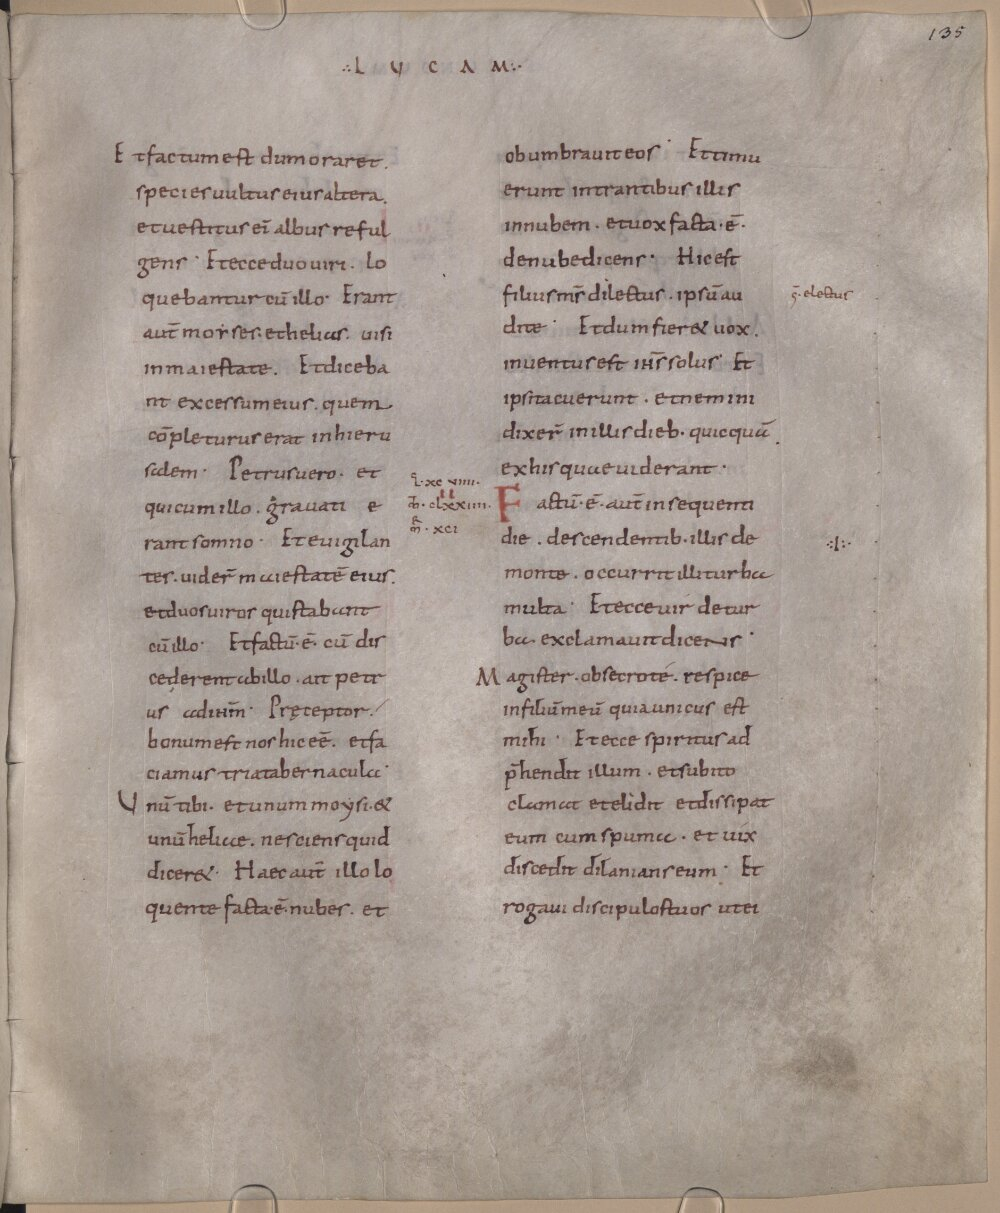 135
·:L V C A M:·
Et factum est dum oraret.
species vultus eius altera.
et uestitus ei̅ albus reful
gens · Et ecce duo uiri . lo
quebantur cu̅ illo · Erant
aut̅ moyses . et helias . uisi
in maiestate . Et diceba
nt excessum eius . quem
co̅pleturus erat in hieru
salem · Petrus uero . et
qui cum illo . grauati e
rant somno · Et euigilan
tes . uider̅ maiestate̅ eius .
et duos uiros qui stabant
cu̅ illo · Et factu̅ . e̅ . cu̅ dis
cederent ab illo . ait petr
us ad ih̅m · Pręceptor .
bonum est nos hic ee̅ . et fa
ciamus tria tabernacula ·
Unu̅ tibi . et unum moysi . &
unu̅ heliae . nesciens quid
dicer& · Haec aut̅ illo lo
quente facta . e̅ . nubes . et
obumbrauit eos · Et timu
erunt intrantibus illis
in nubem . et uox facta . e̅ .
de nube dicens · Hic est
filius mr̅ dilectus . ipsu̅ au
electus
dite · Et dum fier& uox .
inuentus est ih̅s solus · Et
ipsi tacuerunt . et nemini
dixer̅ in illis dieb . quicqua̅ .
ex his quae uiderant ·
xc viiii .
clxxiiii .
xci
Factu̅ . e̅ . aut̅ in sequenti
die . descendentib . illis de
·I·
monte . occurrit illi turba
multa · Et ecce uir de tur
ba exclamauit dicens ·
Magister . obsecro te . respice
in filiu̅ meu̅ quia unicus est
mihi · Et ecce spiritus ad
p̅hendit illum . et subito
clamat et elidit et dissipat
eum cum spuma . et uix
discedit dilanians eum · Et
rogaui discipulos tuos ut ei